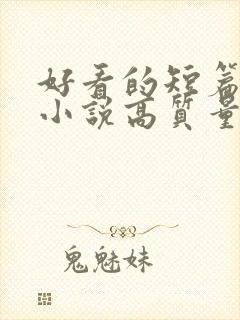 好看的短篇
小説高質量
鬼魅妹